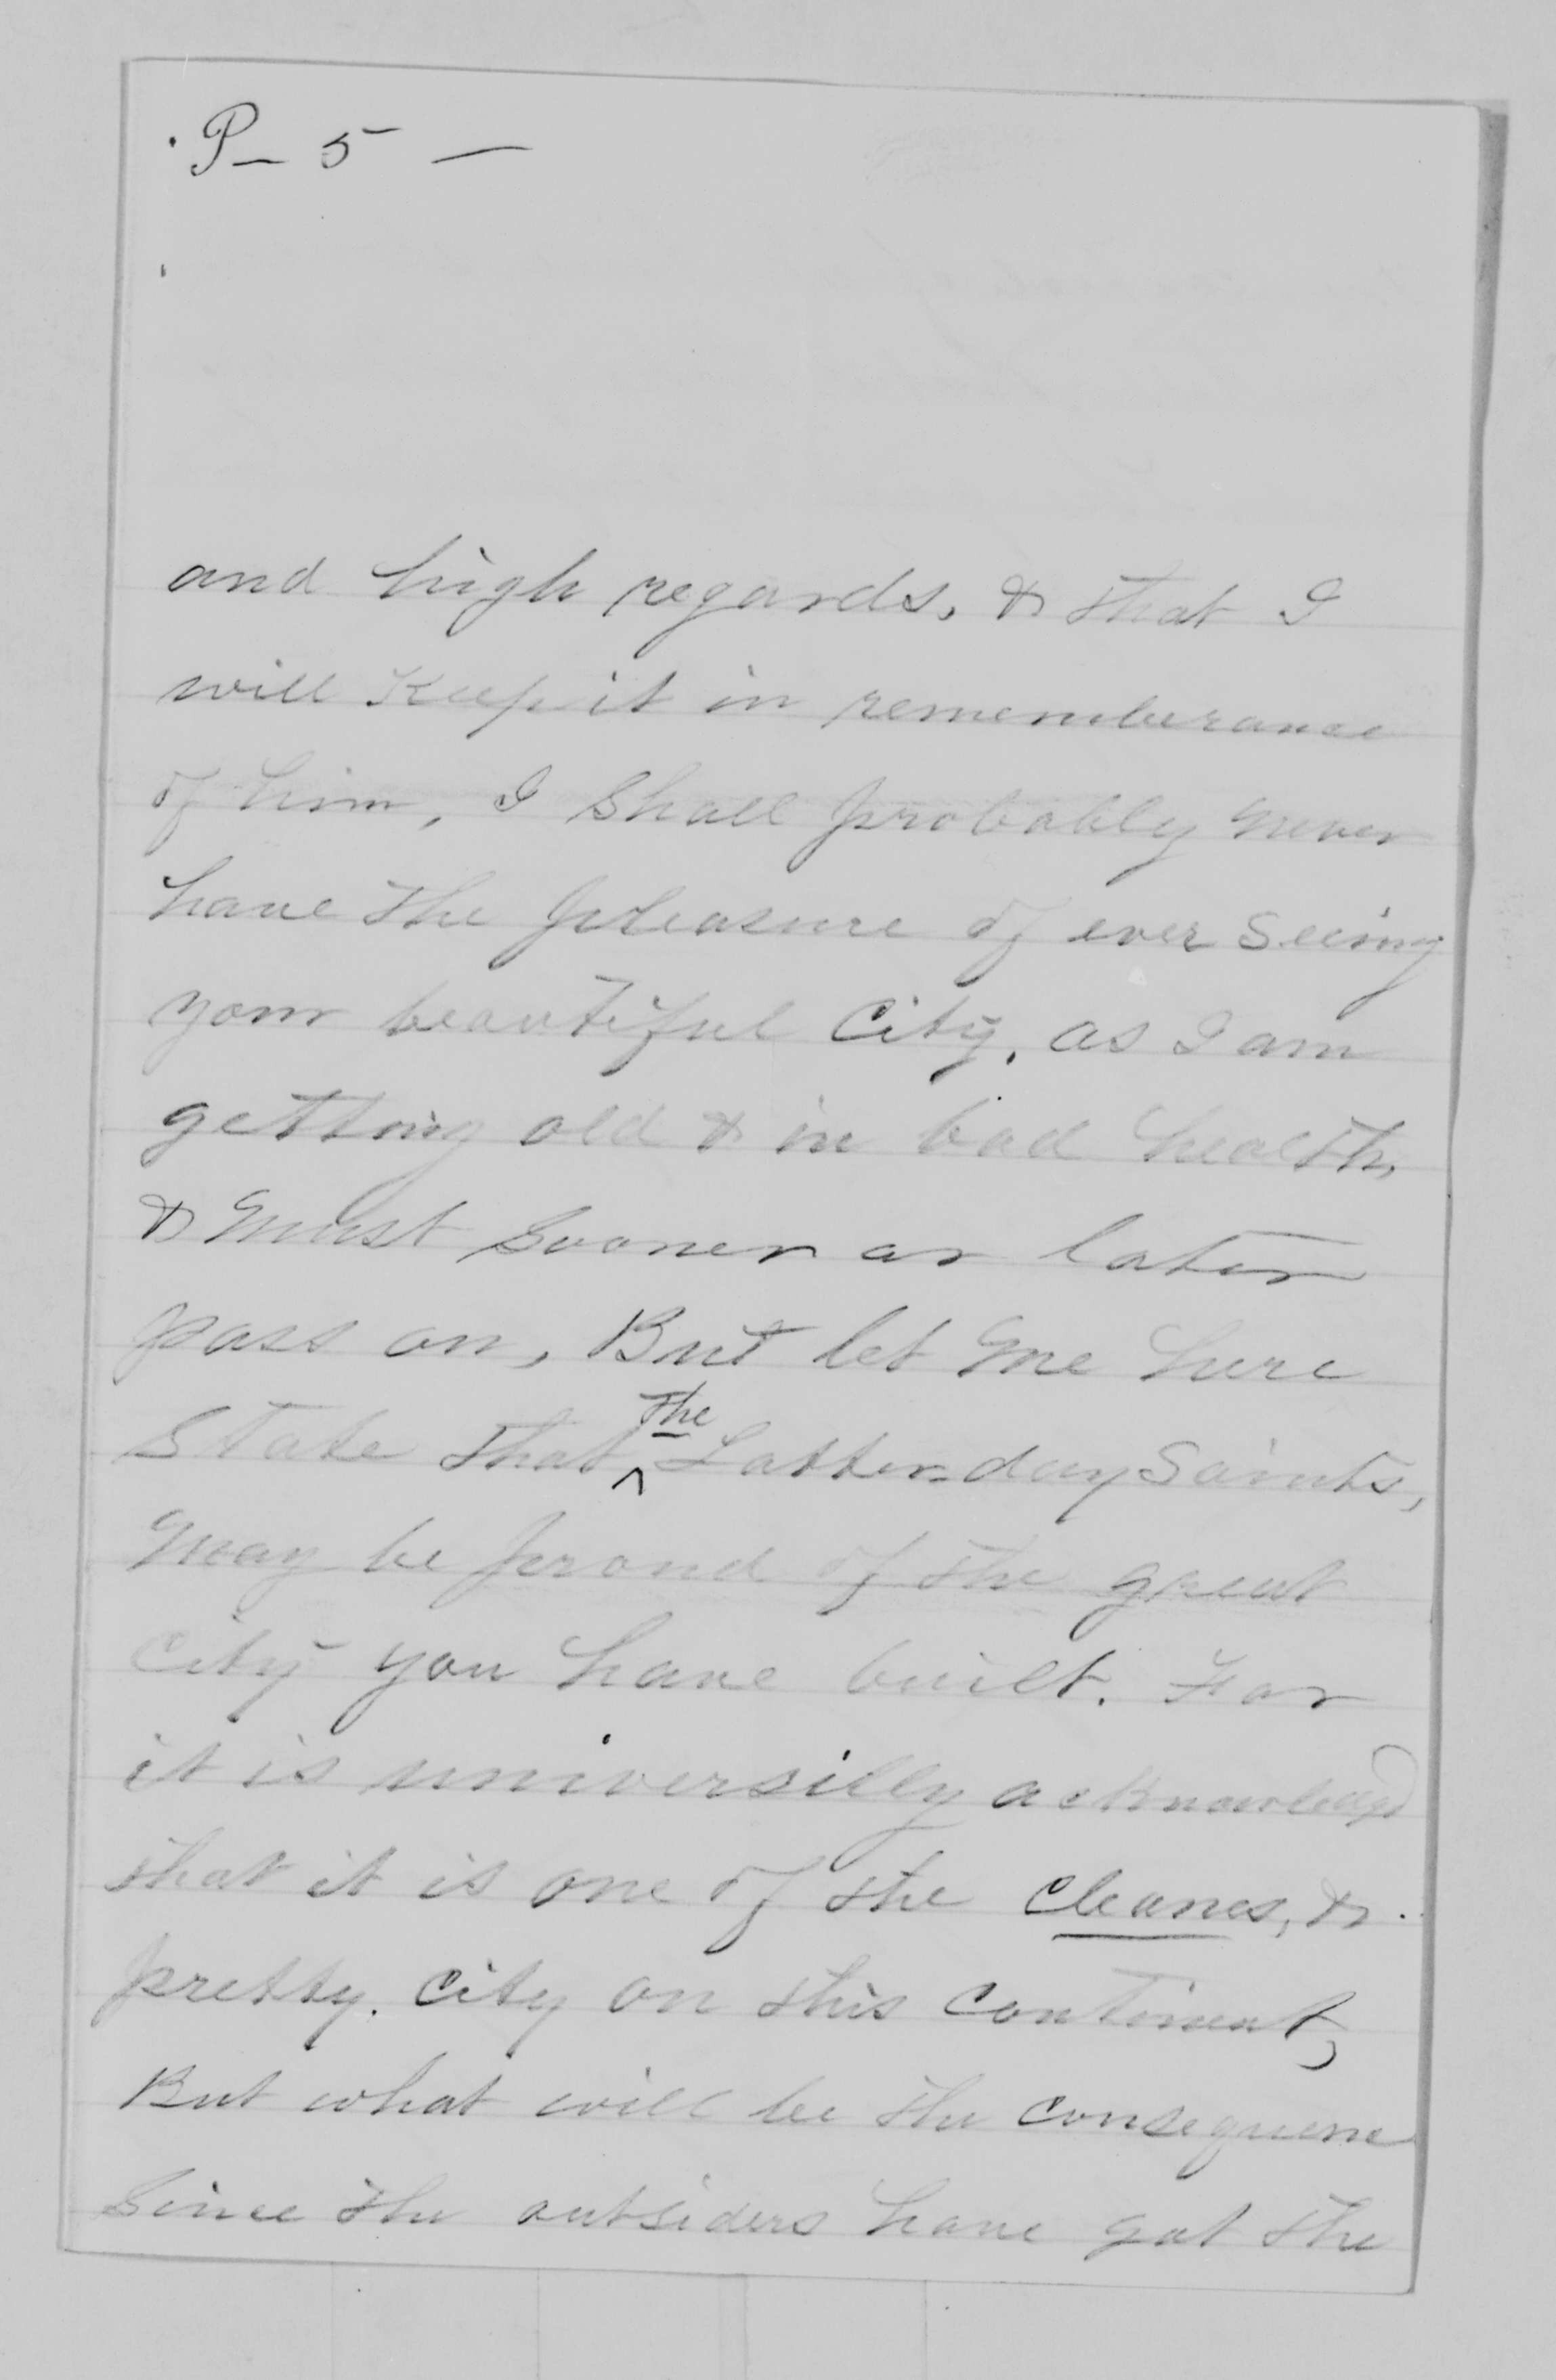 P- 5 -
and high regards, & that I
will Keep it in rememberance
of him, I Shall probably never
have the pleasure of ever Seeing
your beautiful City, as I am
getting old & in bad health,
& must Sooner or later
pass on, But let me here
State that ^the Latter-day Saints,
may be proud of the great
City you have built. For
it is universilly acknowledgd
that it is one of the cleanes, &
pretty. City on this continent,
But what will be the consequence
Since the outsiders have got the